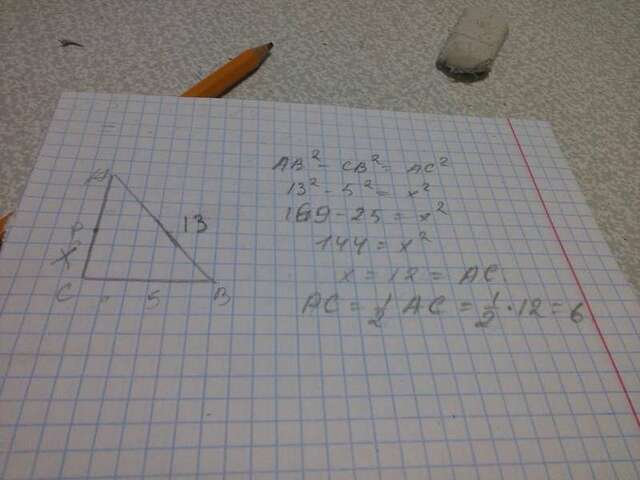 A
P
x
C
5
B
13
AB² - CB² = AC²
13² - 5² = x²
169 - 25 = x²
144 = x²
x = 12 = AC
PC = 1/2 AC = 1/2 · 12 = 6